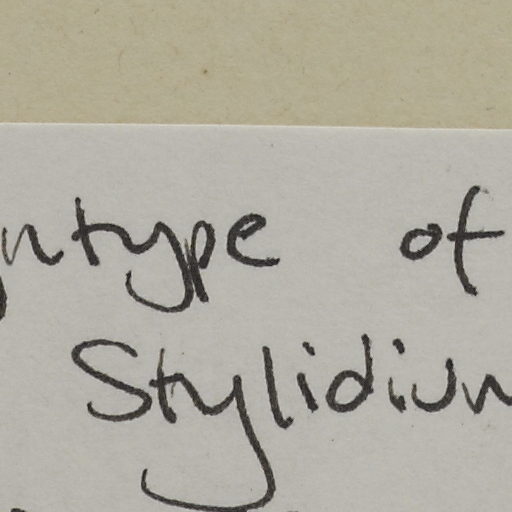 yntype of
Stylidium